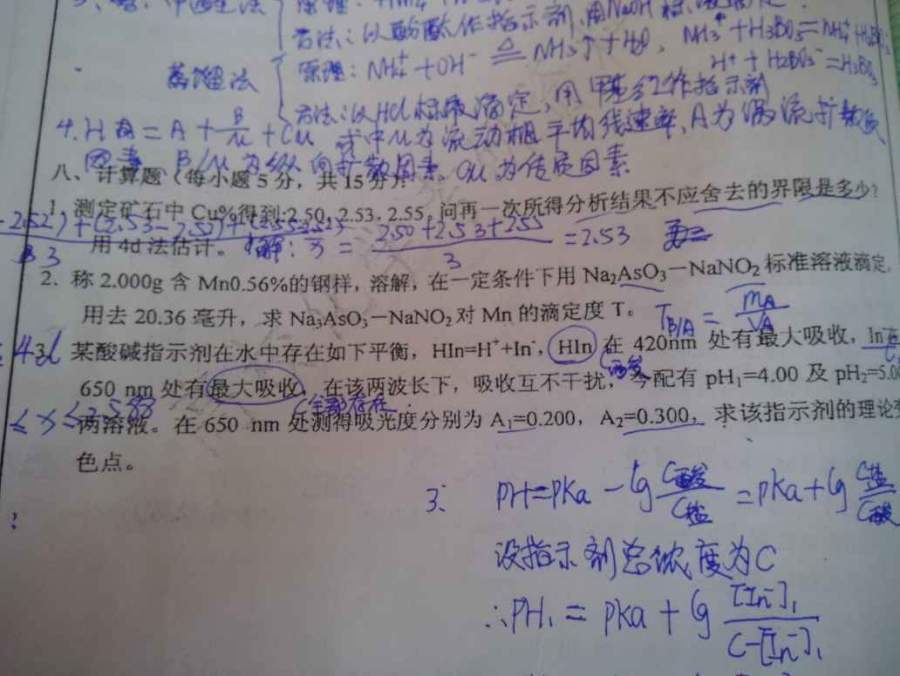 方法:以酚酞作指示剂,用NaOH标
蒸馏法
原理:NH₄⁺+OH⁻ ≜ NH₃↑+H₂O, NH₃+H₃BO₃=NH₄⁺+H₂BO₃⁻
H⁺+H₂BO₃⁻=H₃BO₃
方法:以HCl标准滴定,用甲基红作指示剂
4.H = A + B/u + Cu 式中u为流动相平均线速率,A为涡流扩散项
因素 B/u为纵向扩散因素.Cu为传质因素
八、计算题(每小题5分,共15分):
1. 测定矿石中Cu%得到 2.50, 2.53, 2.55, 问再一次所得分析结果不应舍去的界限是多少?
用4d法估计。 解: x̄ = (2.50+2.53+2.55)/3 = 2.53
2. 称2.000g含Mn0.56%的钢样,溶解,在一定条件下用Na₃AsO₃—NaNO₂标准溶液滴定,
用去20.36毫升,求Na₃AsO₃—NaNO₂对Mn的滴定度T。 T_B/A = m_A/V_A
某酸碱指示剂在水中存在如下平衡,HIn=H⁺+In⁻, HIn 在420nm处有最大吸收, In⁻
650 nm 处有最大吸收,在该两波长下,吸收互不干扰,今配有pH₁=4.00及pH₂=5.00
两溶液。在650 nm 处测得吸光度分别为A₁=0.200, A₂=0.300, 求该指示剂的理论变
色点。
3. PH=PKa - lg C酸/C盐 = pKa + lg C盐/C酸
设指示剂总浓度为C
∴PH₁ = pKa + lg [In⁻]₁/(C-[In⁻]₁)